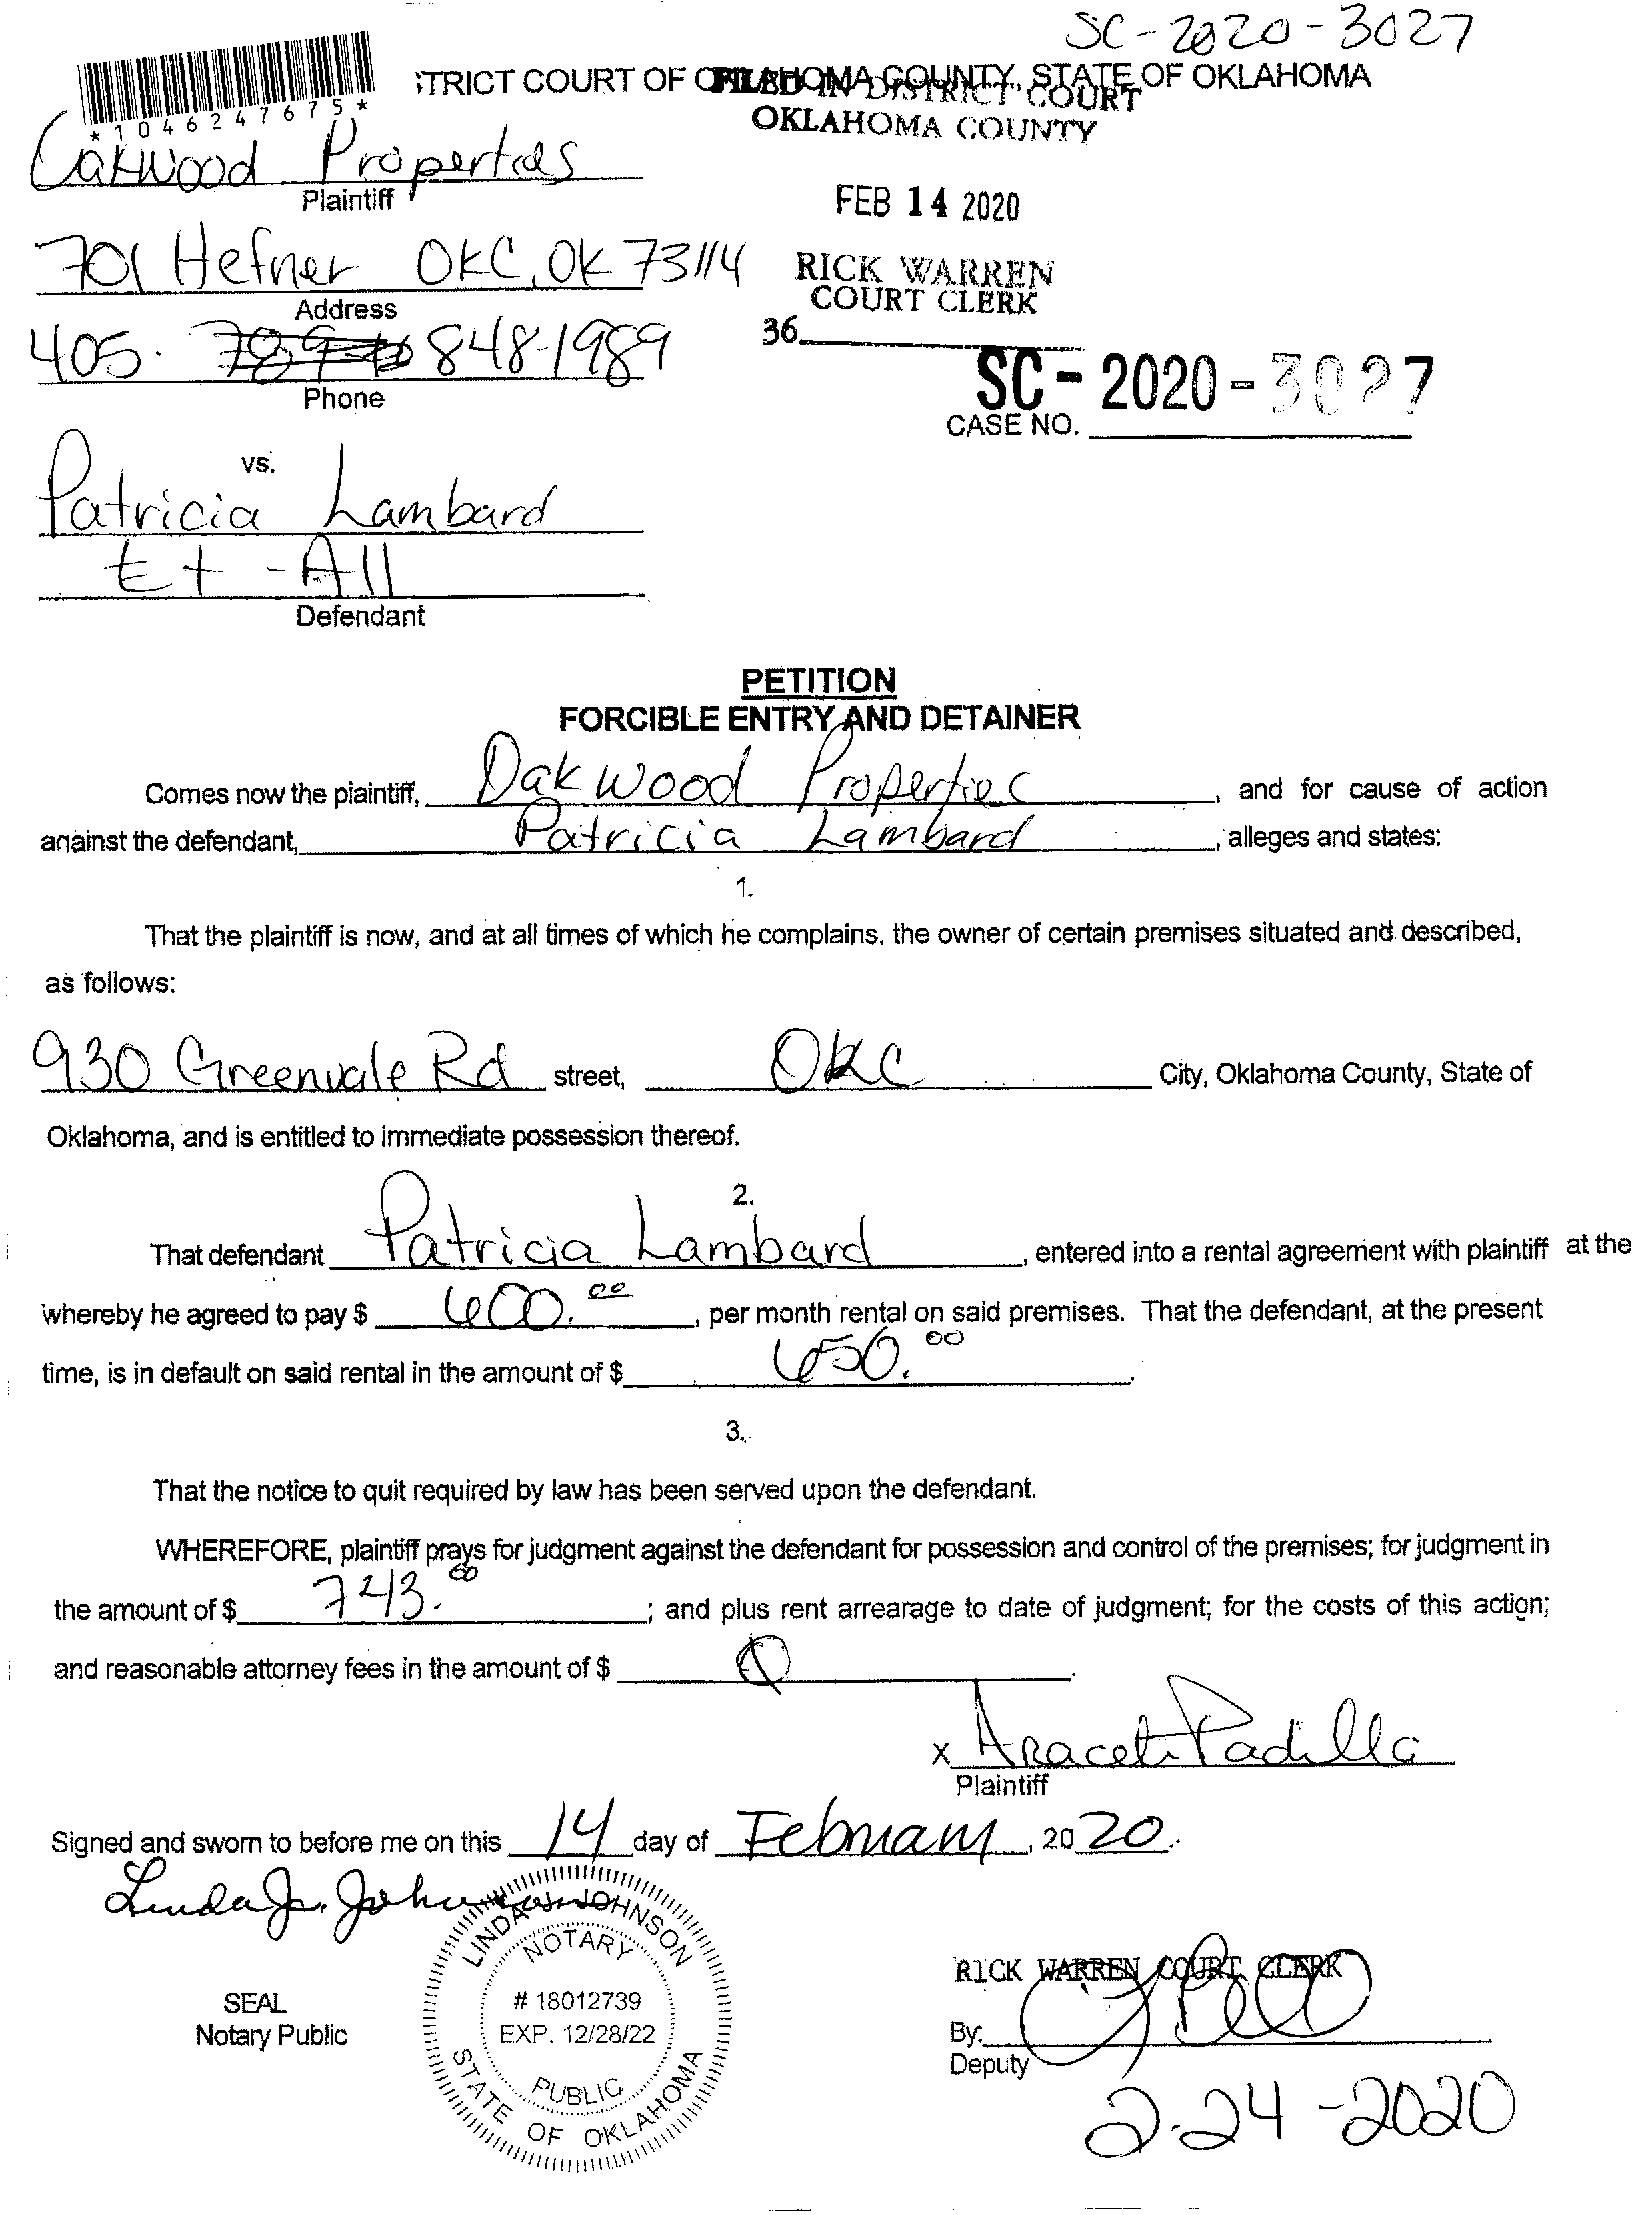 SC-2020-3027
*1046247675*
TRICT COURT OF OKLAHOMA COUNTY, STATE OF OKLAHOMA
FILED IN DISTRICT COURT
OKLAHOMA COUNTY
Oakwood Properties
Plaintiff
FEB 14 2020
701 Hefner OKC, OK 73114
Address
RICK WARREN
COURT CLERK
405. 848-1989
Phone
36
SC-2020-3027
CASE NO.
vs.
Patricia Lambard
Et-All
Defendant
PETITION
FORCIBLE ENTRY AND DETAINER
Comes now the plaintiff, Oakwood Properties, and for cause of action
against the defendant, Patricia Lambard, alleges and states:
1.
That the plaintiff is now, and at all times of which he complains, the owner of certain premises situated and described,
as follows:
930 Greenvale Rd street, OKC City, Oklahoma County, State of
Oklahoma, and is entitled to immediate possession thereof.
2.
That defendant Patricia Lambard, entered into a rental agreement with plaintiff at the
whereby he agreed to pay $ 600.00, per month rental on said premises. That the defendant, at the present
time, is in default on said rental in the amount of $ 650.00.
3.
That the notice to quit required by law has been served upon the defendant.
WHEREFORE, plaintiff prays for judgment against the defendant for possession and control of the premises; for judgment in
the amount of $ 743.00; and plus rent arrearage to date of judgment; for the costs of this action;
and reasonable attorney fees in the amount of $
x Araceli Padilla
Plaintiff
Signed and sworn to before me on this 14 day of February, 2020.
Linda J. Johnson
LINDA J. JOHNSON
NOTARY
# 18012739
EXP. 12/28/22
PUBLIC
STATE OF OKLAHOMA
SEAL
Notary Public
RICK WARREN COURT CLERK
By:
Deputy
2-24-2020